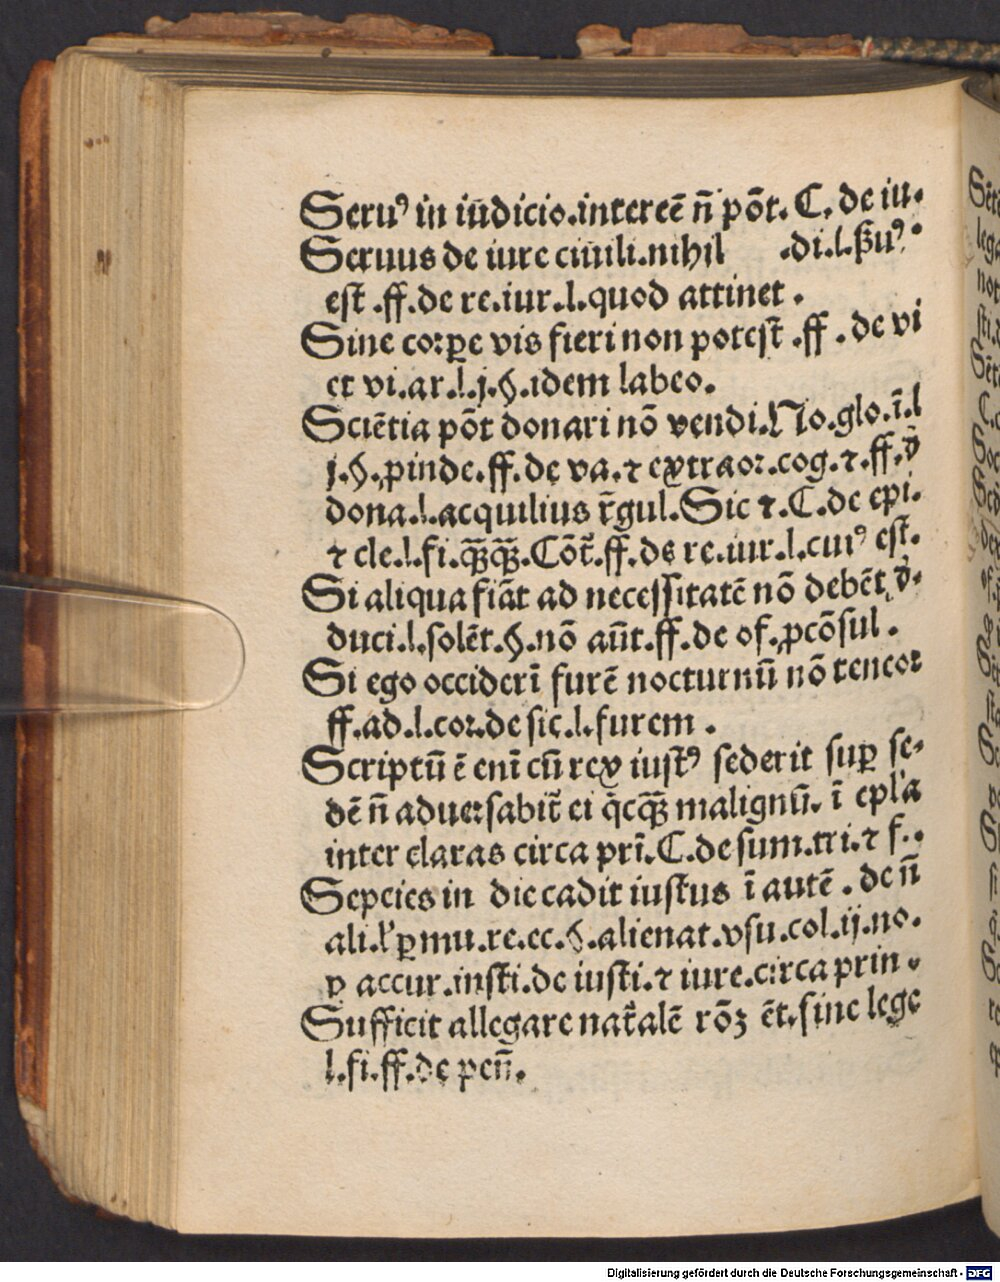 Seruꝰ in iūdicio.intereē n̄ pōt. C. de iu.
Seruus de iure ciuili.nihil .di.l.ẞuꝰ.
est .ff.de re.iur.l.quod attinet .
Sine corꝑe vis fieri non potest .ff . de vi
et vi.ar.l.j.§.idem labeo.
Sciētia pōt donari nō vendi.No.glo.ī.l
j.§.ꝓinde.ff.de va.⁊ extraor.cog.⁊.ff.đ
dona.l.acquilius r̄gul.Sic ⁊.C.de epi.
⁊ cle.l.fi.qq̄qq̄.Cōt̄.ff.de re.iur.l.cuiꝰ est.
Si aliqua fiāt ad necessitatē nō debēt đ.
duci.l.solēt.§.nō aūt.ff.de of.ꝓcōsul .
Si ego occiderī furē nocturnū nō teneor
ff.ad.l.cor.de sic.l.furem .
Scriptū ē enī cū rex iustꝰ sederit suꝑ se-
dē n̄ aduersabit̄ ei q̄cqꝫ malignū. ī epl'a
inter claras circa prī.C.de sum.tri.⁊ f..
Sepcies in die cadit iustus ī autē . de n̄
ali.l'ꝑmu.re.ec.§.alienat.vsu.col.ij.no.
ꝑ accur.insti.de iusti.⁊ iure.circa prin.
Sufficit allegare nat̄alē rōꝫ ēt.sine lege
l.fi.ff.de pen̄.
Digitalisierung gefördert durch die Deutsche Forschungsgemeinschaft - DFG